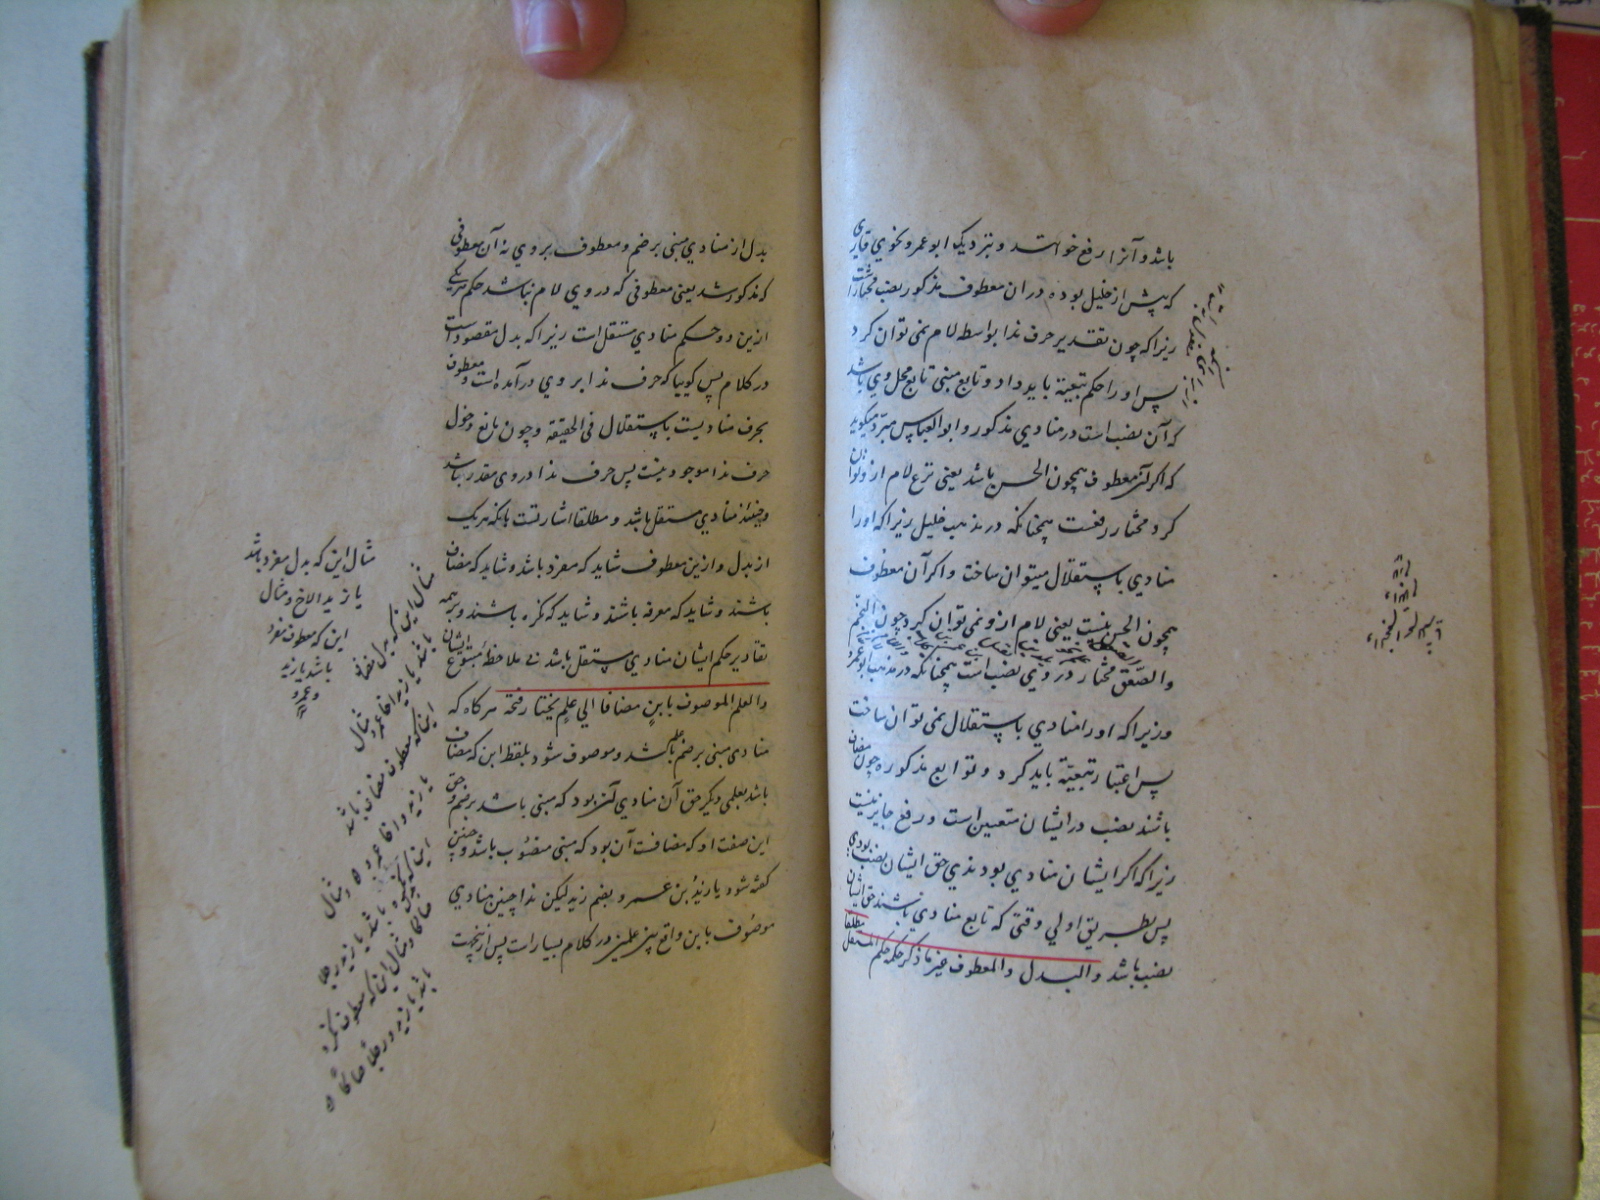 باشد و آنرا رفع خوانند و بنزدیک ابو عمرو نحوی قاری
که پیش از خلیل بوده دران معطوف مذکور نصب مختارست
زیرا که چون تقدیر حرف ندا بواسطه لام نمی توان کرد
پس او را حکم تبعیة باید داد و تابع مبنی تابع محل وی باشد
که آن نصب است در منادی مذکور و ابو العباس مبرد میگوید
که اگر آن معطوف همچون الحسن باشد یعنی نزع لام ازو توان
کرد مختار رفعست همچنانکه در مذهب خلیل زیرا که او را
منادی باستقلال میتوان ساخت و اگر آن معطوف
همچون الحسن نیست یعنی لام ازو نمی توان کرد چون النجم
والصعق مختار در وی نصب است همچنانکه در مذهب ابو عمرو
وزیرا که او را منادی باستقلال نمی توان ساخت
پس اعتبار تبعیة باید کرد و توابع مذکوره چون مضاف
باشند نصب در ایشان متعین است و رفع جایز نیست
زیرا که اگر ایشان منادی بودندی حق ایشان نصب بودی
پس بطریق اولی وقتی که تابع منادی باشند حق ایشان
نصب باشد والبدل والمعطوف غیر ما ذکر حکمه حکم المستقل مطلقا
بدل از منادی مبنی بر ضم و معطوف بر وی نه آن معطوفی
که مذکور شد یعنی معطوفی که در وی لام نباشد حکم هر یکی
ازین دو حکم منادی مستقل است زیرا که بدل مقصودست
در کلام پس گوییا که حرف ندا بر وی درآمده است و معطوف
بحرف منادیست باستقلال فی الحقیقة و چون مانع دخول
حرف ندا موجود نیست پس حرف ندا در وی مقدر باشد
منادی مستقل باشد و مطلقا اشارتست بانکه هر یک
از بدل و ازین معطوف شاید که مفرد باشد و شاید که مضاف
باشند و شاید که معرفه باشند و شاید که نکره باشند و بر همه
تقادیر حکم ایشان منادی مستقل باشد بی ملاحظه متبوع ایشان
والعلم الموصوف بابن مضافا الی علم یختار فتحه هرگاه که
منادی مبنی بر ضم علم باشد و موصوف شود بلفظ ابن که مضاف
باشد بعلمی دیگر حق آن منادی آن بود که مبنی باشد بر ضم و حق
این صفت او که مضافست آن بود که منصوب باشد و چنین
گفته شود یا زید بن عمرو بضم زید لیکن ندا چنین منادی
موصوف بابن واقع بین علمین در کلام بسیارست پس ازینجهت
مثال این که بدل مفرد باشد
یا زید الاخ و مثال
این که معطوف مفرد
باشد یا زید
و عمرو
مثال این که بدل مضاف
باشد یا زید اخا عمرو و مثال
این که معطوف مضاف باشد
یا زید و اخا عمرو و مثال
این که نکره باشد یا زید رجلا
صالحا و مثال این که معطوف نکره
باشد یا زید و رجلا صالحا